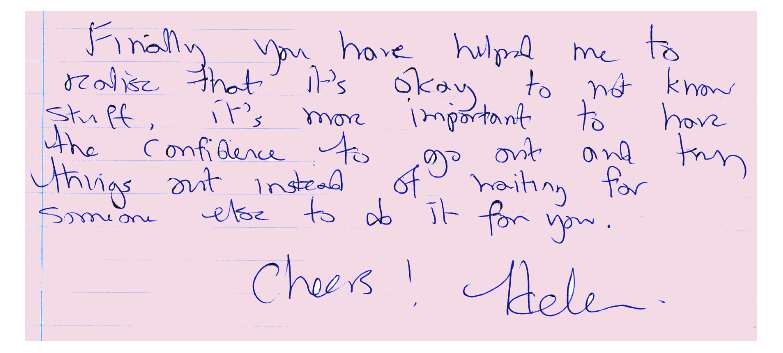 Finally you have helped me to
realise that it's okay to not know
stuff, it's more important to have
the confidence to go out and try
things out instead of waiting for
someone else to do it for you.
Cheers! Helen.